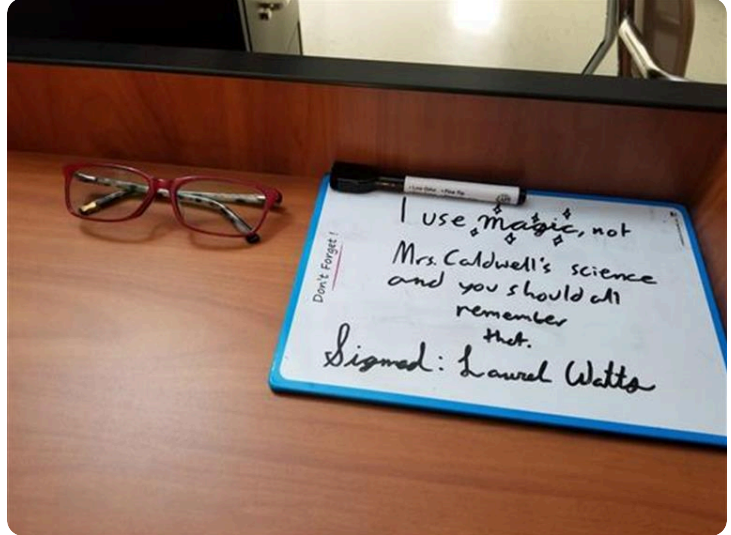 Don't Forget!
I use magic, not
Mrs. Caldwell's science
and you should all
remember
that.
Signed: Laurel Watts